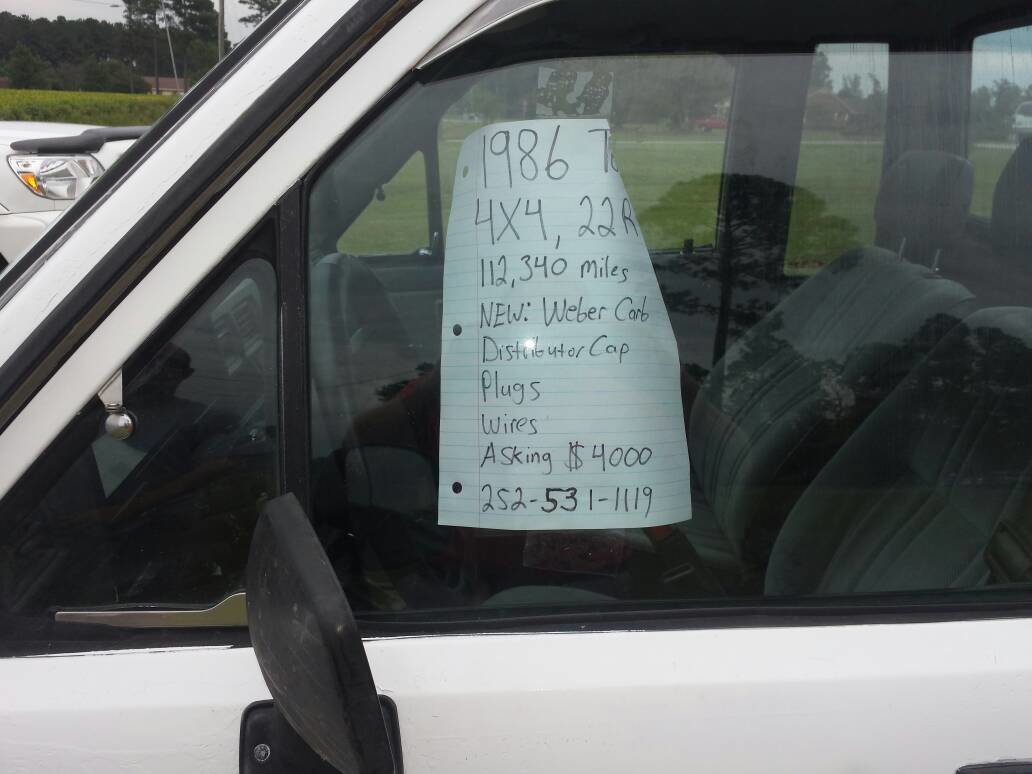 1986 To
4X4, 22R
112,340 miles
NEW: Weber Carb
Distributor Cap
Plugs
Wires
Asking $4000
252-531-1119